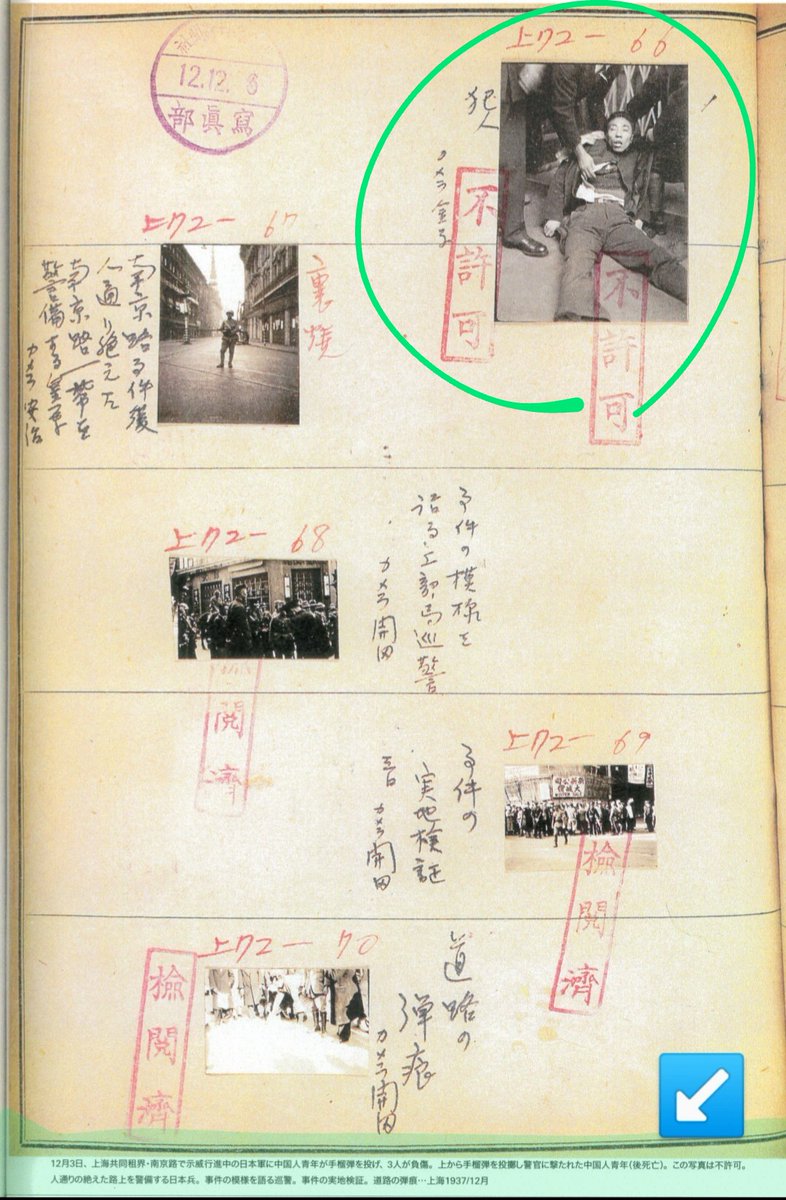 12.12.8
寫眞部
上フユー 66
犯人
カメラ 金子
不許可
不許可
上フユー 67
裏焼
南京路事件後
人通り絶えた
南京路一帯を
警備する皇軍
カメラ 安治
上フユー 68
事件の模様を
語る工部局巡警
カメラ 開田
検閲濟
上フユー 69
事件の
実地検証
三日 カメラ 開田
檢閲濟
上フユー 70
道路の
弾痕
カメラ 開田
檢閲濟
12月3日、上海共同租界・南京路で示威行進中の日本軍に中国人青年が手榴弾を投げ、3人が負傷。上から手榴弾を投擲し警官に撃たれた中国人青年(後死亡)。この写真は不許可。
人通りの絶えた路上を警備する日本兵。事件の模様を語る巡警。事件の実地検証。道路の弾痕…上海1937/12月